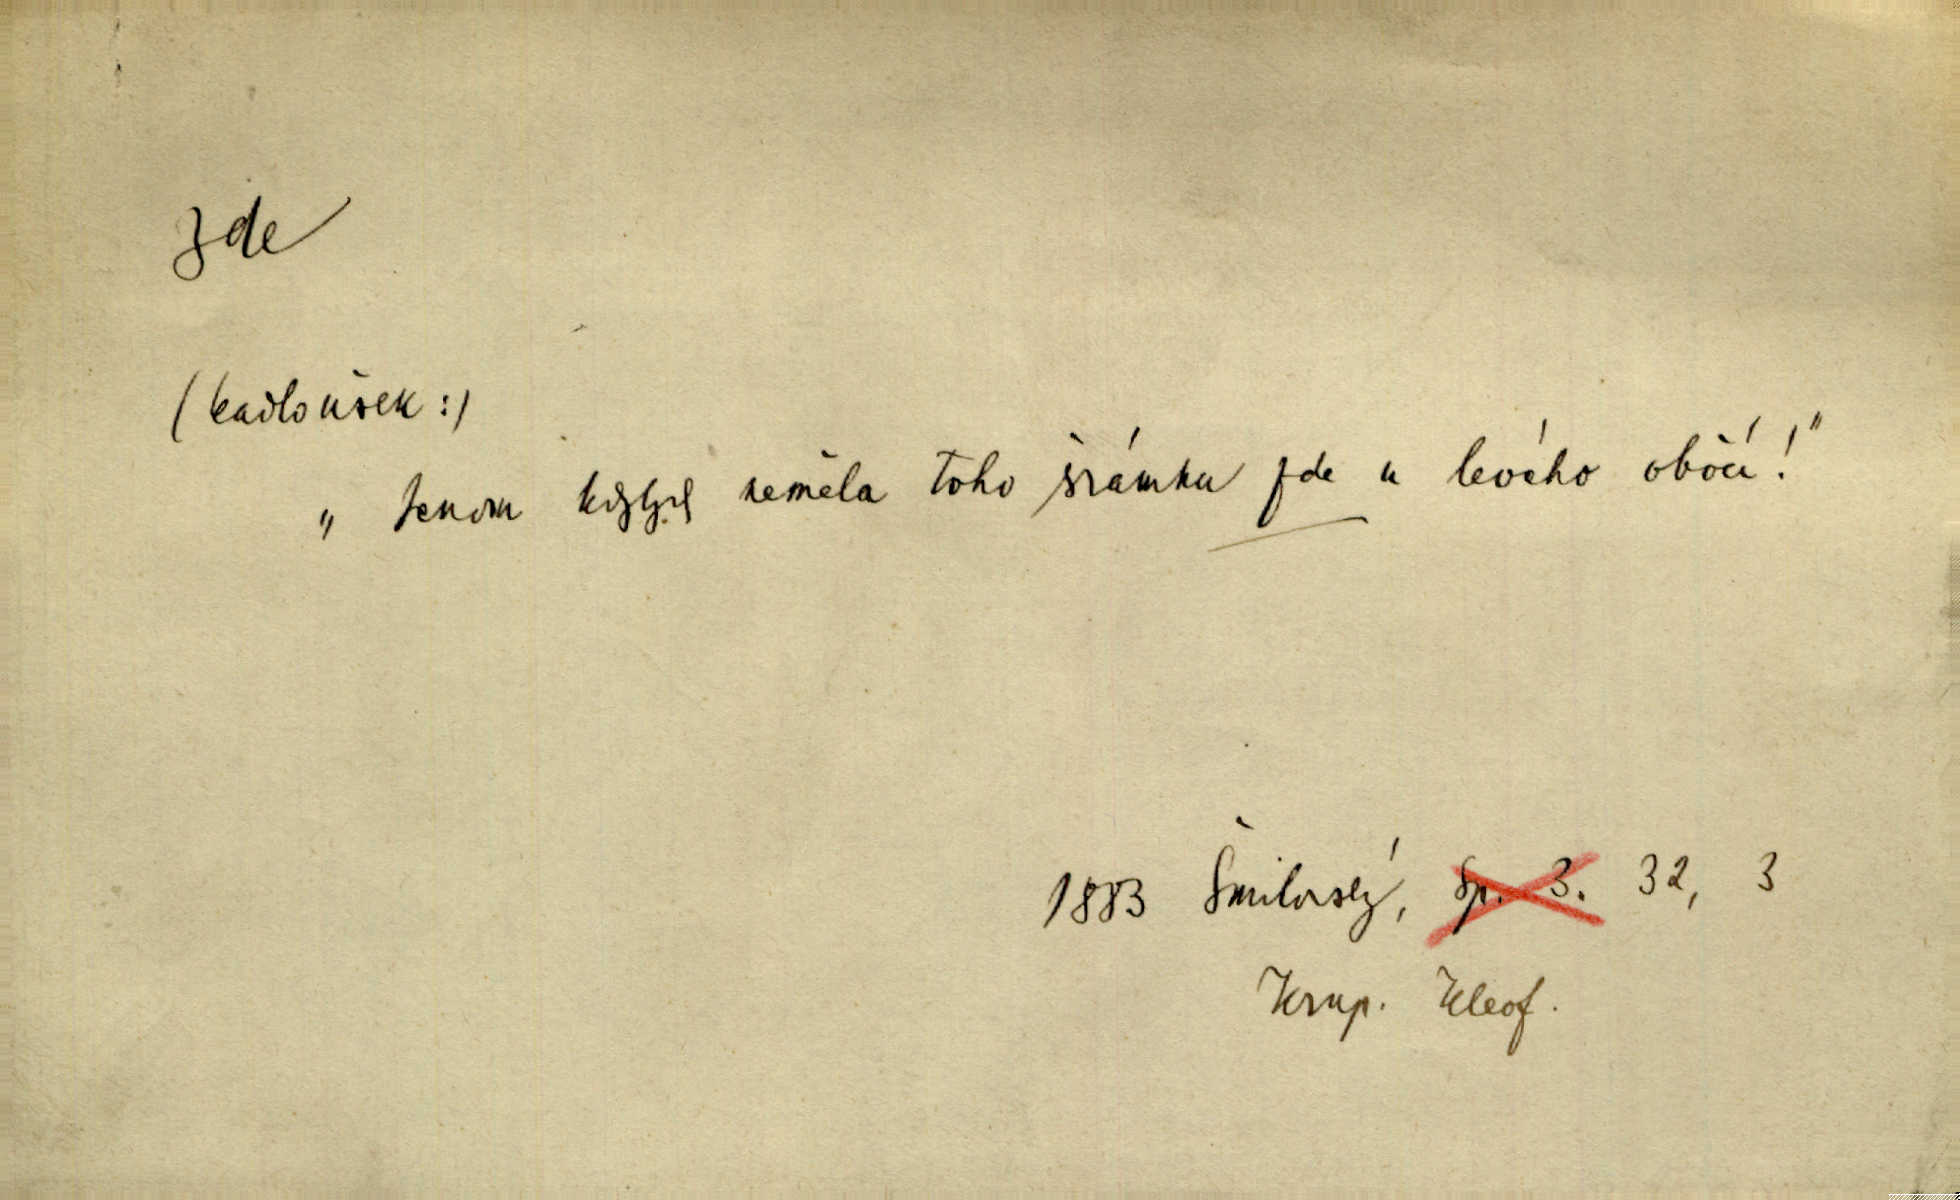 Zde
(Kadloušek:)
„ Jenom kdyby neměla toho šrámku zde u levého obočí!"
1883 Šmilovský, Sp. 3. 32, 3
Krup. Kleof.